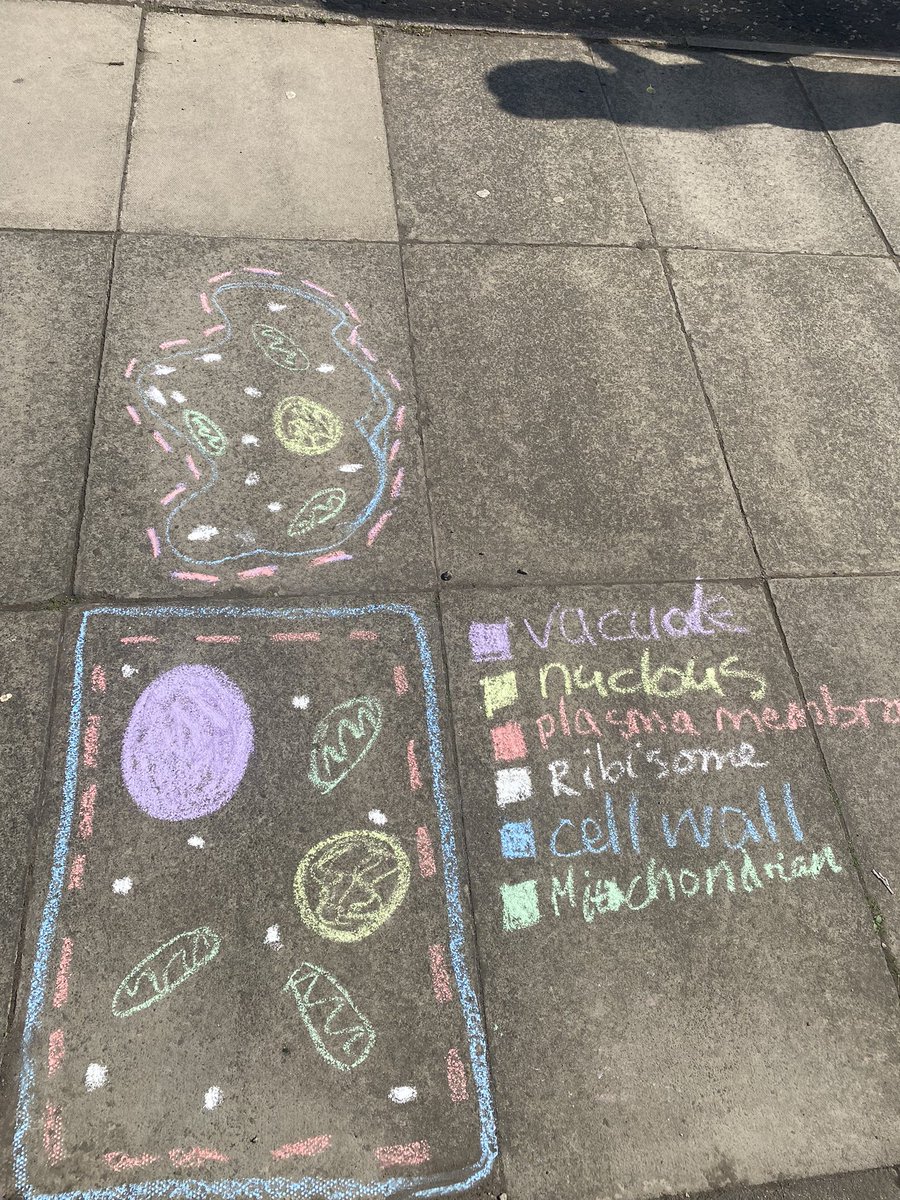 vacuole
nuclous
plasma membra
Ribisome
cell wall
Mitochondrian